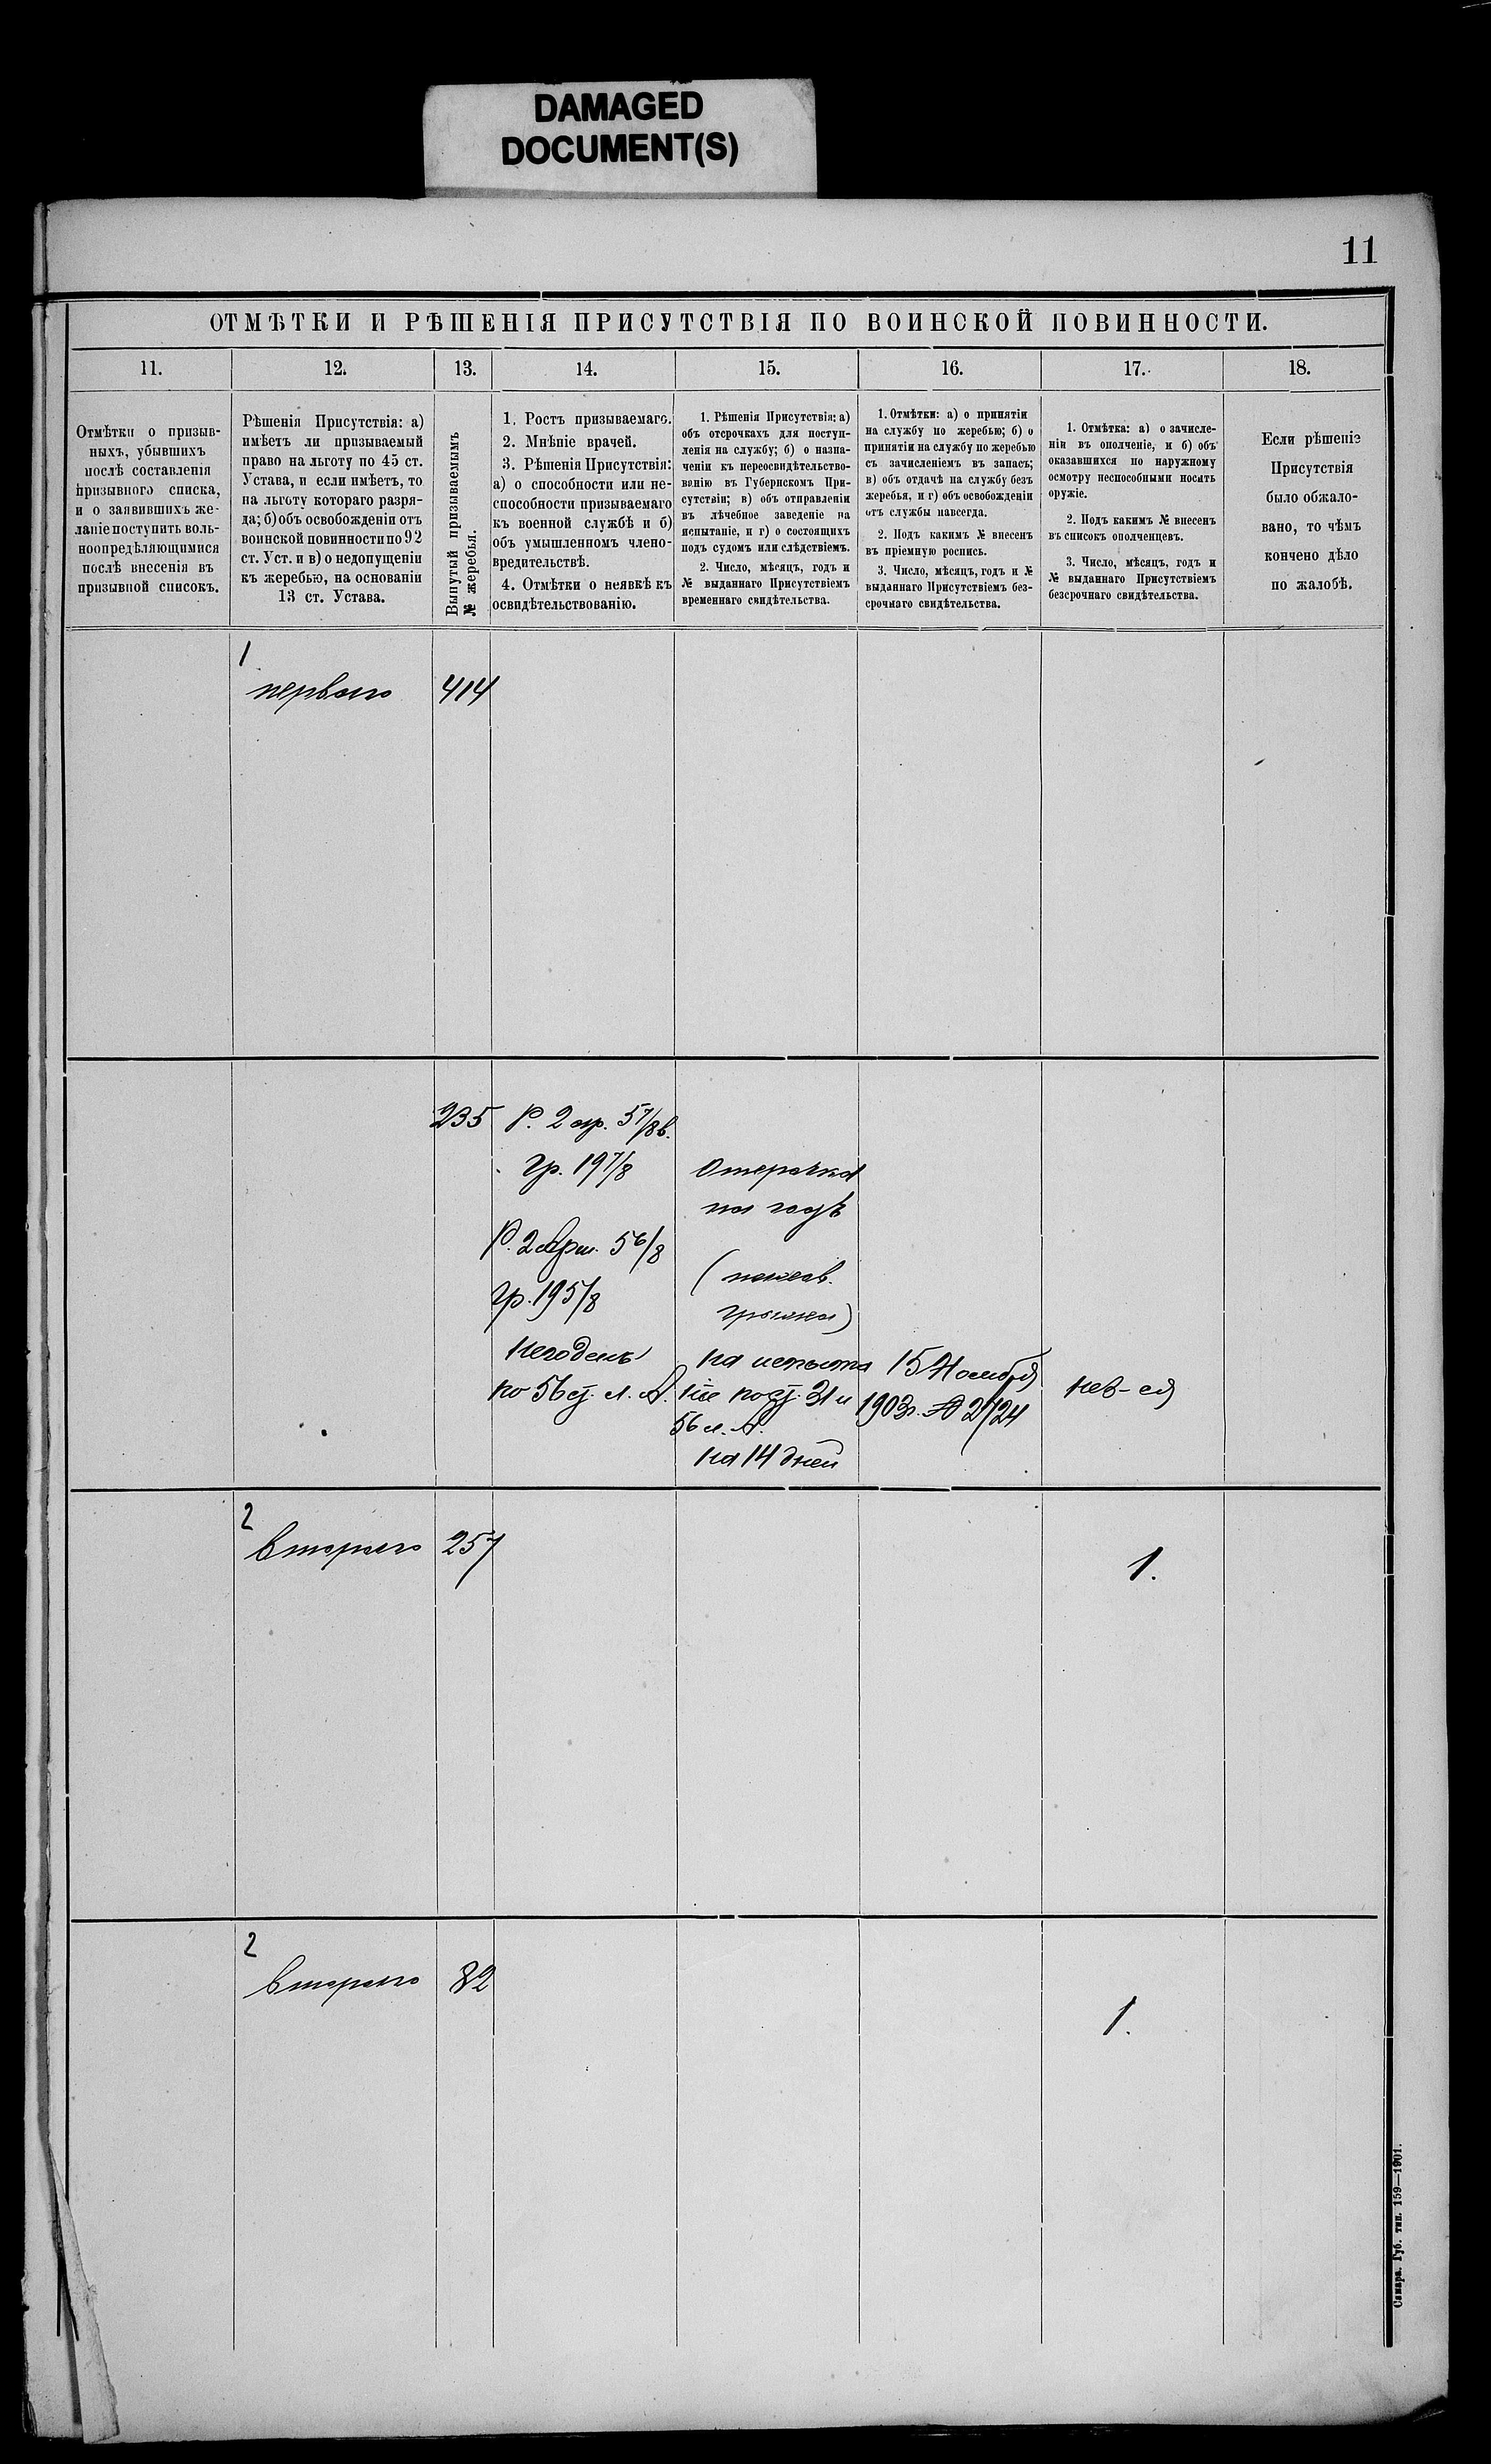 DAMAGED
DOCUMENT(S)
11
ОТМѢТКИ И РѢШЕНІЯ ПРИСУТСТВІЯ ПО ВОИНСКОЙ ПОВИННОСТИ.
11.
12.
13.
14.
15.
16.
17.
18.
Отмѣтки о призыв-
ныхъ, убывшихъ
послѣ составленія
призывного списка,
и о заявившихъ же-
ланіе поступить воль-
ноопредѣляющимися
послѣ внесенія въ
призывной списокъ.
Рѣшенія Присутствія: а)
имѣетъ ли призываемый
право на льготу по 45 ст.
Устава, и если имѣетъ, то
на льготу котораго разря-
да; б) объ освобожденіи отъ
воинской повинности по 92
ст. Уст. и в) о недопущеніи
къ жеребью, на основаніи
13 ст. Устава.
Вынутый призываемымъ
№ жеребья.
1. Ростъ призываемаго.
2. Мнѣніе врачей.
3. Рѣшенія Присутствія:
а) о способности или не-
способности призываемаго
къ военной службѣ и б)
объ умышленномъ члено-
вредительствѣ.
4. Отмѣтки о неявкѣ къ
освидѣтельствованію.
1. Рѣшенія Присутствія: а)
объ отсрочкахъ для поступ-
ленія на службу; б) о назна-
ченіи къ переосвидѣтельство-
ванію въ Губернскомъ При-
сутствіи; в) объ отправленіи
въ лѣчебное заведеніе на
испытаніе, и г) о состоящихъ
подъ судомъ или слѣдствіемъ.
2. Число, мѣсяцъ, годъ и
№ выданнаго Присутствіемъ
временнаго свидѣтельства.
1. Отмѣтки: а) о принятіи
на службу по жеребью; б) о
принятіи на службу по жеребью
съ зачисленіемъ въ запасъ;
в) объ отдачѣ на службу безъ
жеребья, и г) объ освобожденіи
отъ службы навсегда.
2. Подъ какимъ № внесенъ
въ пріемную роспись.
3. Число, мѣсяцъ, годъ и №
выданнаго Присутствіемъ без-
срочнаго свидѣтельства.
1. Отмѣтка: а) о зачисле-
ніи въ ополченіе, и б) объ
оказавшихся по наружному
осмотру неспособными носить
оружіе.
2. Подъ какимъ № внесенъ
въ списокъ ополченцевъ.
3. Число, мѣсяцъ, годъ и
№ выданнаго Присутствіемъ
безсрочнаго свидѣтельства.
Если рѣшеніе
Присутствія
было обжало-
вано, то чѣмъ
кончено дѣло
по жалобѣ.
1
первого
414
235
Р. 2 ар. 5 7/8 в.
гр. 19 7/8
Р. 2 Арш. 5 6/8
гр. 19 5/8
негоденъ
по 56 ст. л. А.
Отсрочка
на годъ
грыжа)
на испыта
ніе по ст. 31 и
56 л. А.
на 14 дней
15 Ноября
1903 г. № 2124
нев-ся
2
второго
257
1.
2
второго
82
1.
Самара. Губ. тип. 159—1901.